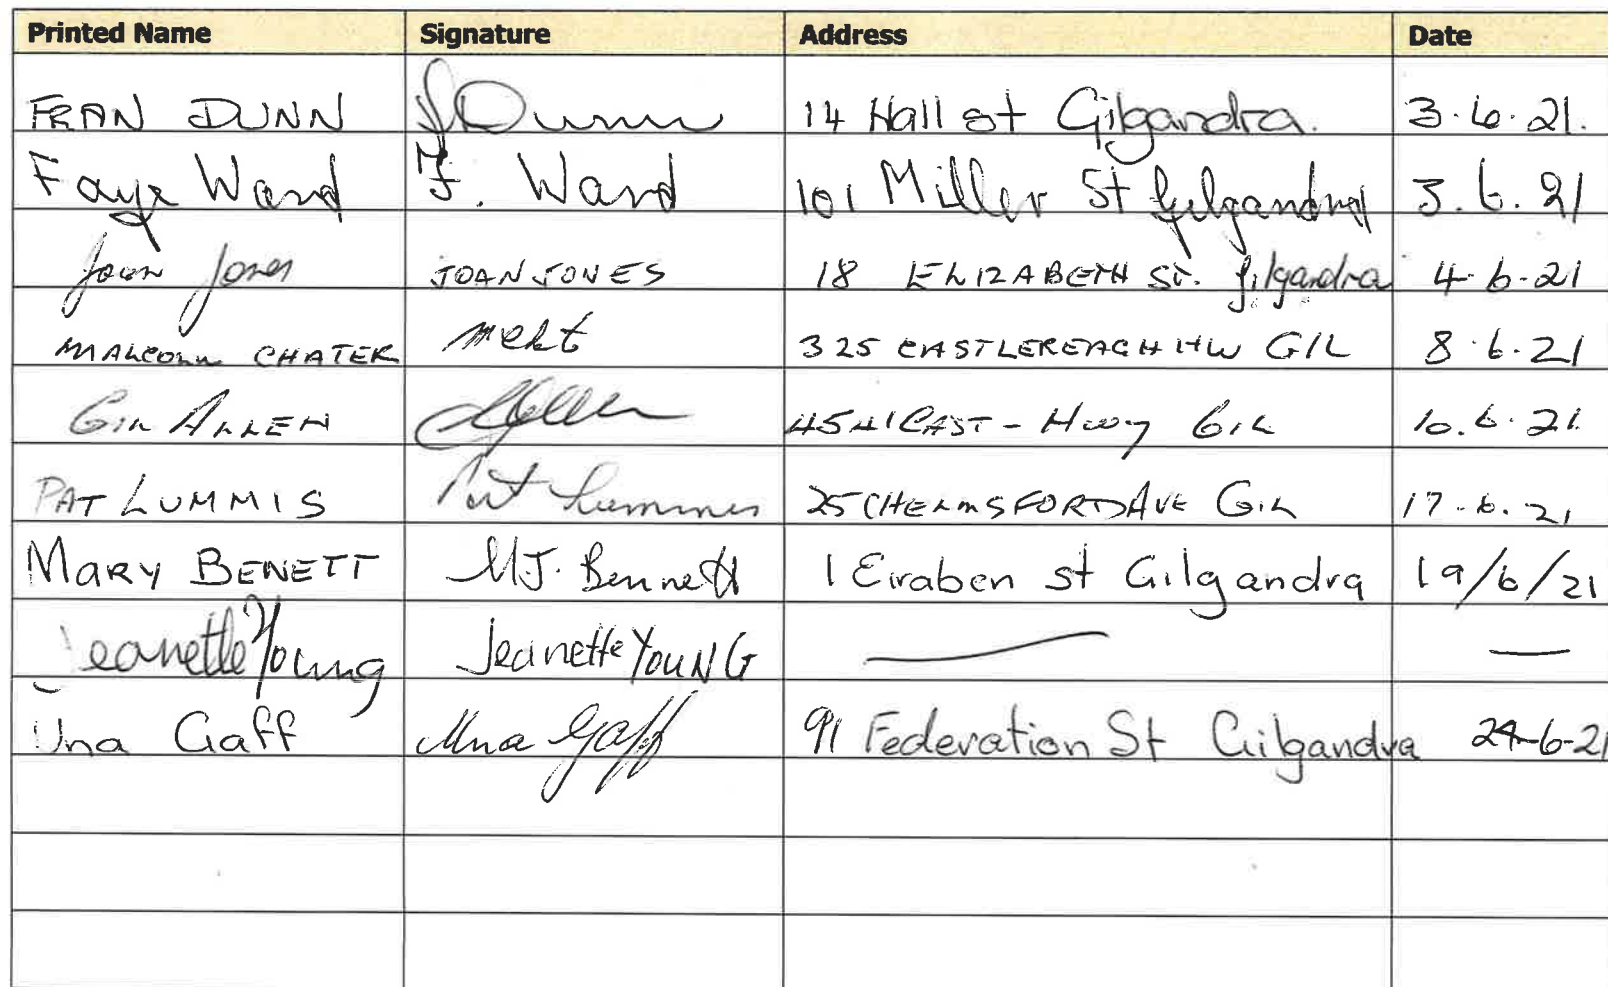 Printed Name Signature Address Date
FRAN DUNN F Dunn 14 Hall st Gilgandra. 3.6.21.
Faye Ward F. Ward 101 Miller St Gilgandra 3.6.21
Joan Jones JOAN JONES 18 ELIZABETH ST. Gilgandra 4-6-21
MALCOLM CHATER 325 CASTLEREAGH HW GIL 8.6.21
GIL ALLEN CAST-Hwy GIL 10.6.21.
PAT LUMMIS Pat Lummis 25 CHELMSFORD AVE GIL 17.6.21
MARY BENETT MJ. Bennett 1 Eiraben st Gilgandra 19/6/21
Jeanette Young Jeanette YOUNG — —
Una Gaff Una Gaff 91 Federation St Gilgandra 24-6-21